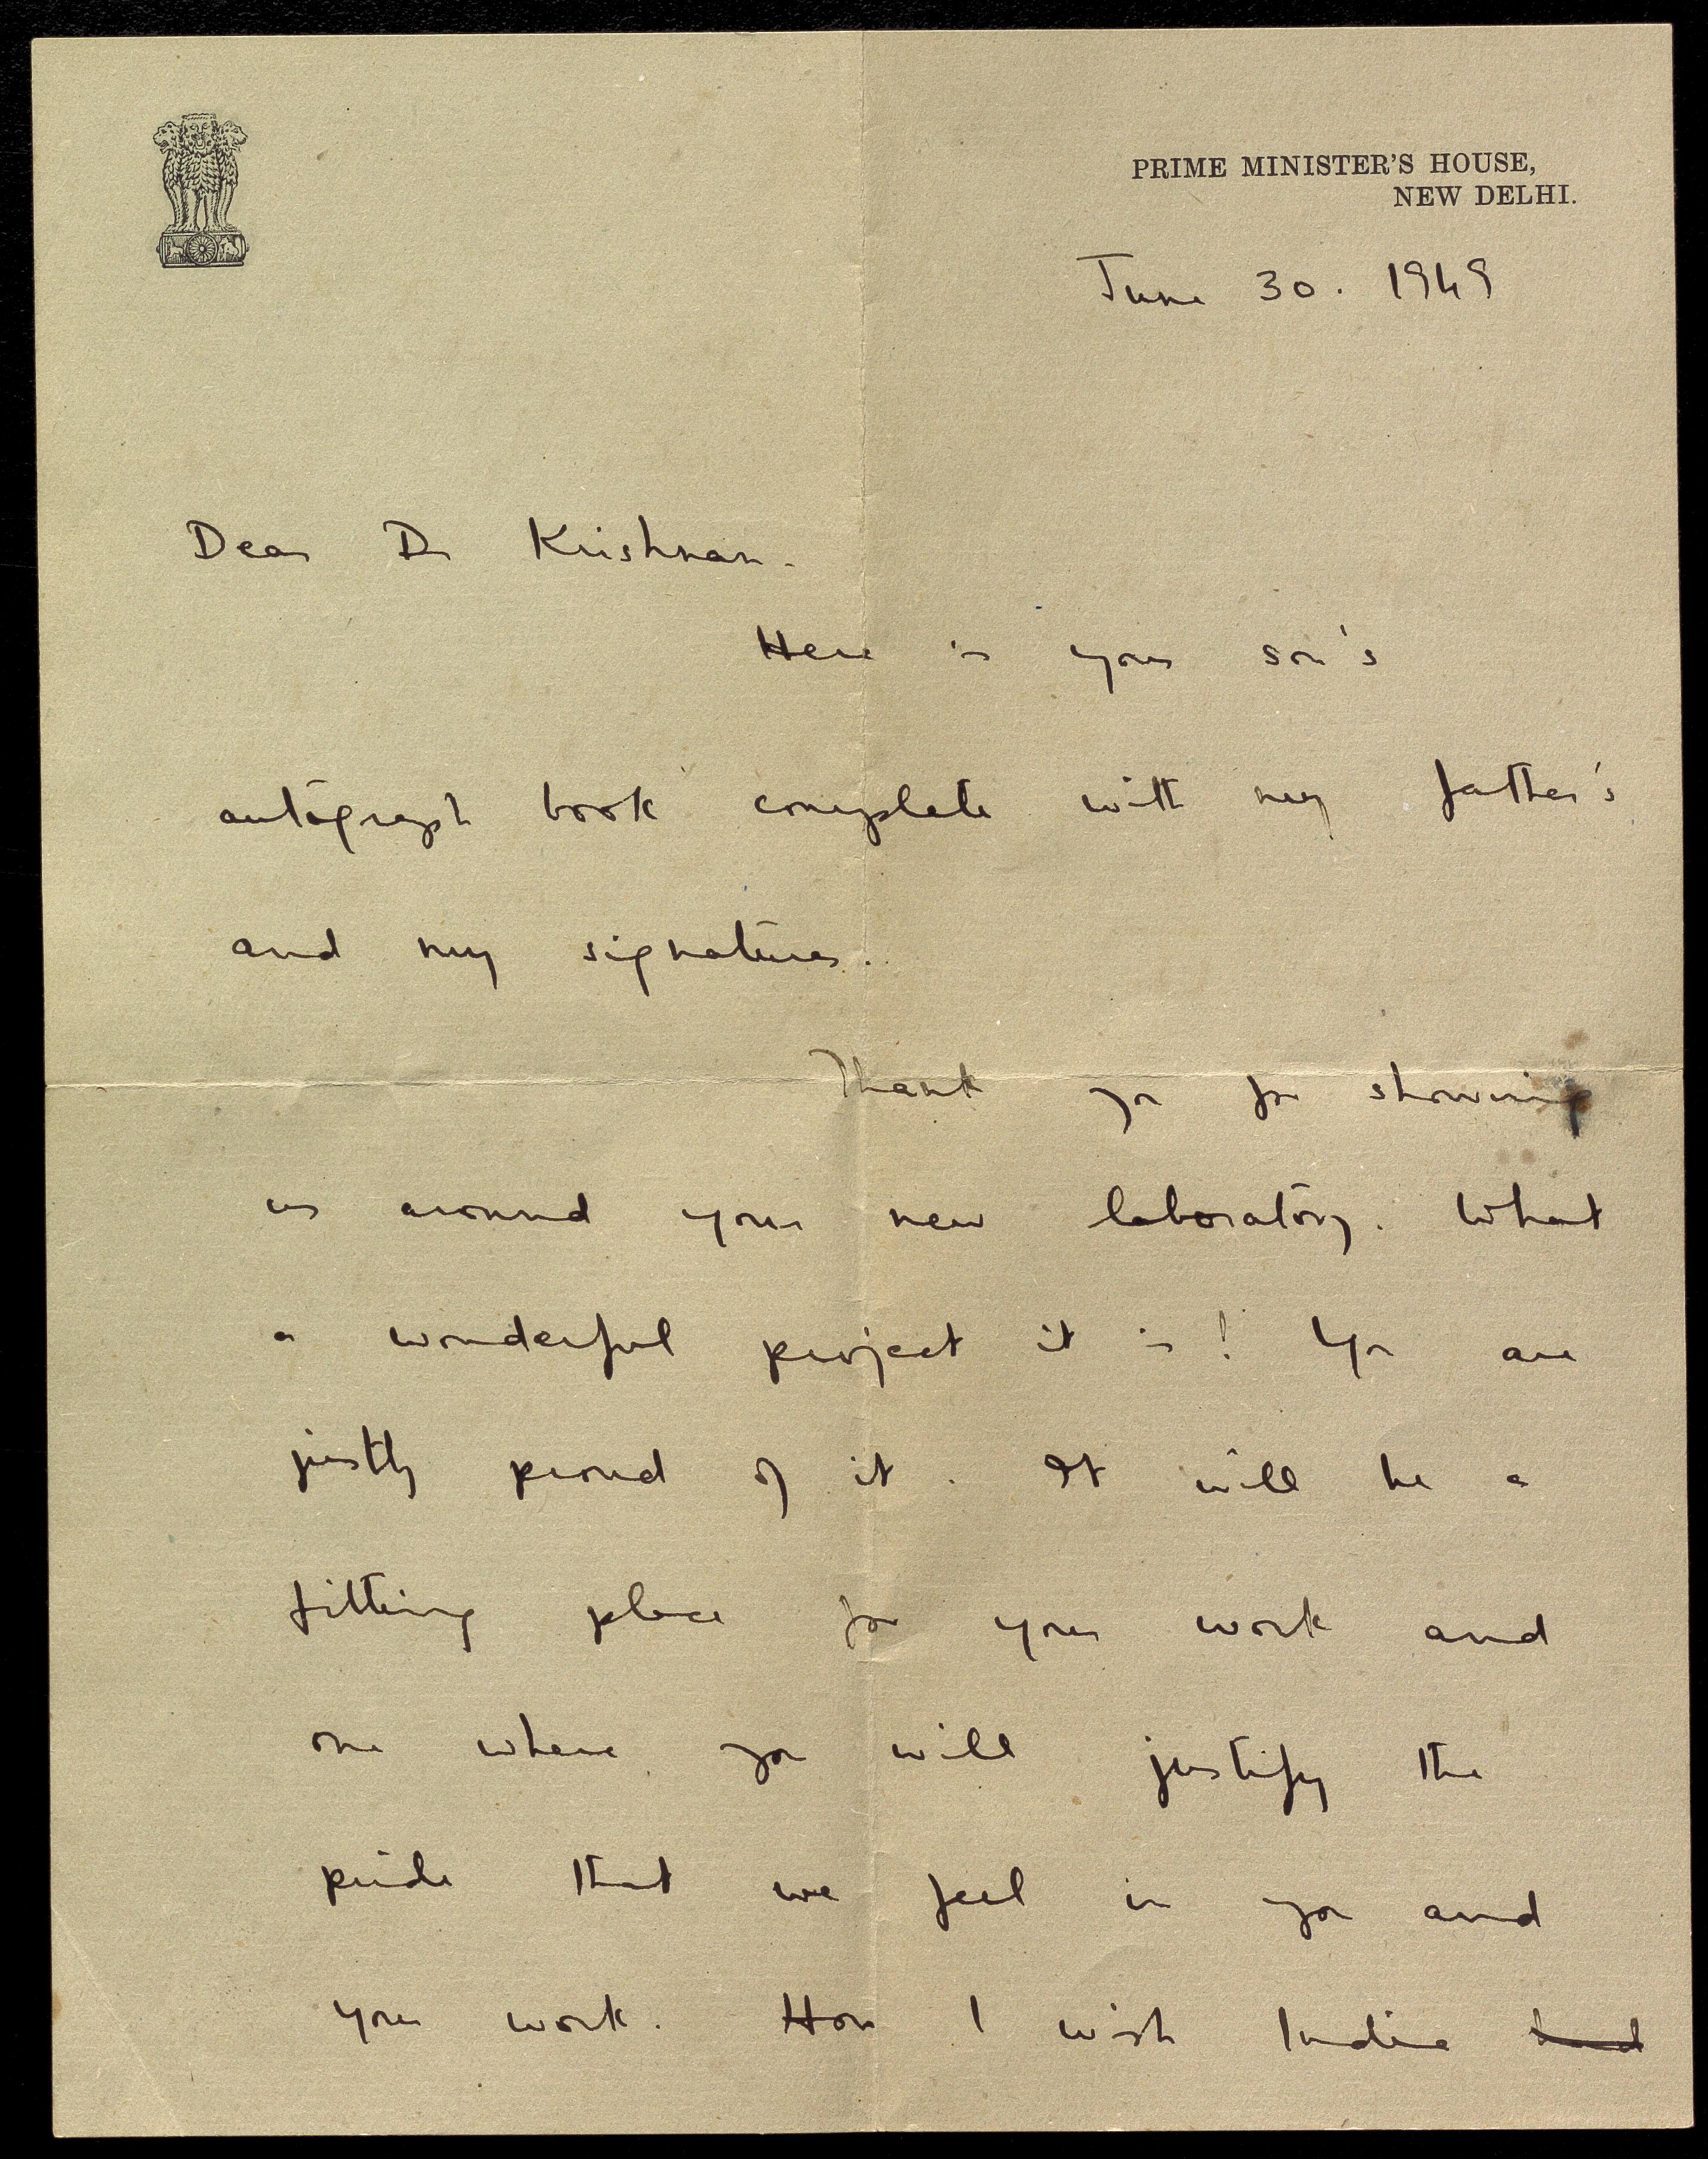 PRIME MINISTER'S HOUSE,
NEW DELHI.
June 30. 1949
Dear Dr Krishnan.
Here is your son's
autograph book complete with my father's
and my signatures.
Thank you for showing
us around your new laboratory. What
a wonderful project it is! You are
justly proud of it. It will be a
fitting place for your work and
one where you will justify the
pride that we feel in you and
your work. How I wish India had